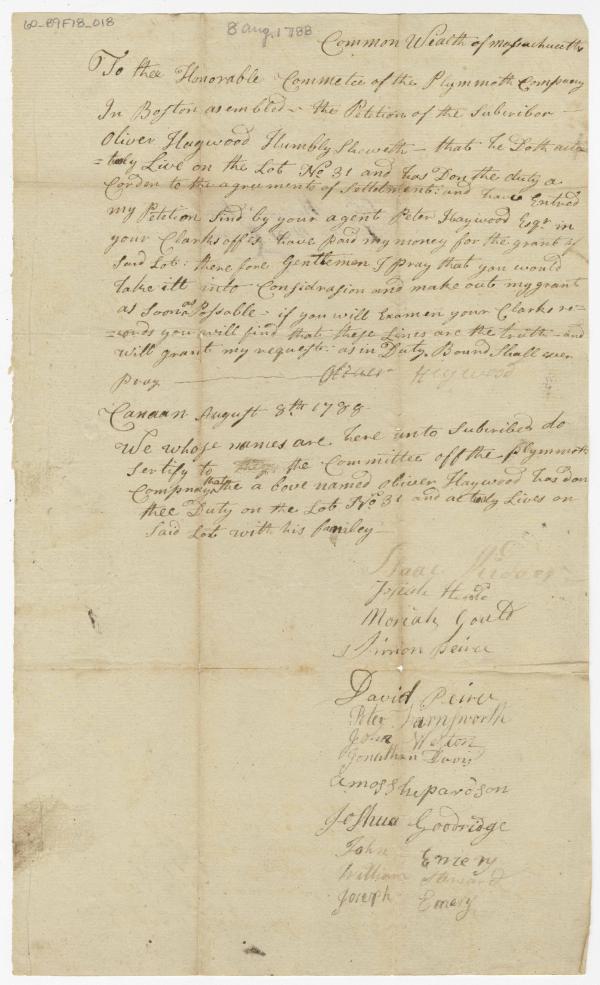 60_89F18_018
8 Aug. 1788
Common Wealth of Massachusetts
To thee Honorable Commetee of the Plymmoth Company
In Boston asembled - the Petition of the Subcribor
Oliver Haywood Humbly Sheweth - that he Doth actu
=tualy Live on the Lot No 31 and has Don the duty a
Cordin to the agreements of Settelment: and have Entred
my Petition Sind by your agent Peter Haywood Esqr in
your Clarks offes have paid my money for the grant of
Said Lot: there fore Gentlemen I pray that you would
take itt into Considrasion and make out my grant
as Soon as Possable - if you will Examen your Clarks re=
=cords you will find that these Lines are the truth - and
will grant my requeste - as in Duty Bound Shall ever
Pray Oliver Heywood
Canaan August 8th 1788
We whose names are here unto Subcribed do
Sertify to the Committee off the Plymmoth
Compnay that the a bove named Oliver Haywood has don
thee Duty on the Lot No 31 and actualy Lives on
Said Lot with his famley
Isaac
Josiah
Moriah Gould
Simon Peirce
David Peirce
Peter Farnsworth
John Weston
Jonathan Davis
Amos Shepardson
Joshua Goodridge
John Emery
William
Joseph Emery